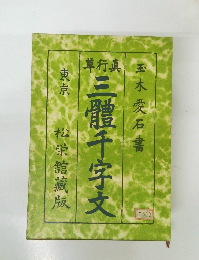 玉木愛石書
真行草
三體千字文
東京 松栄館蔵版